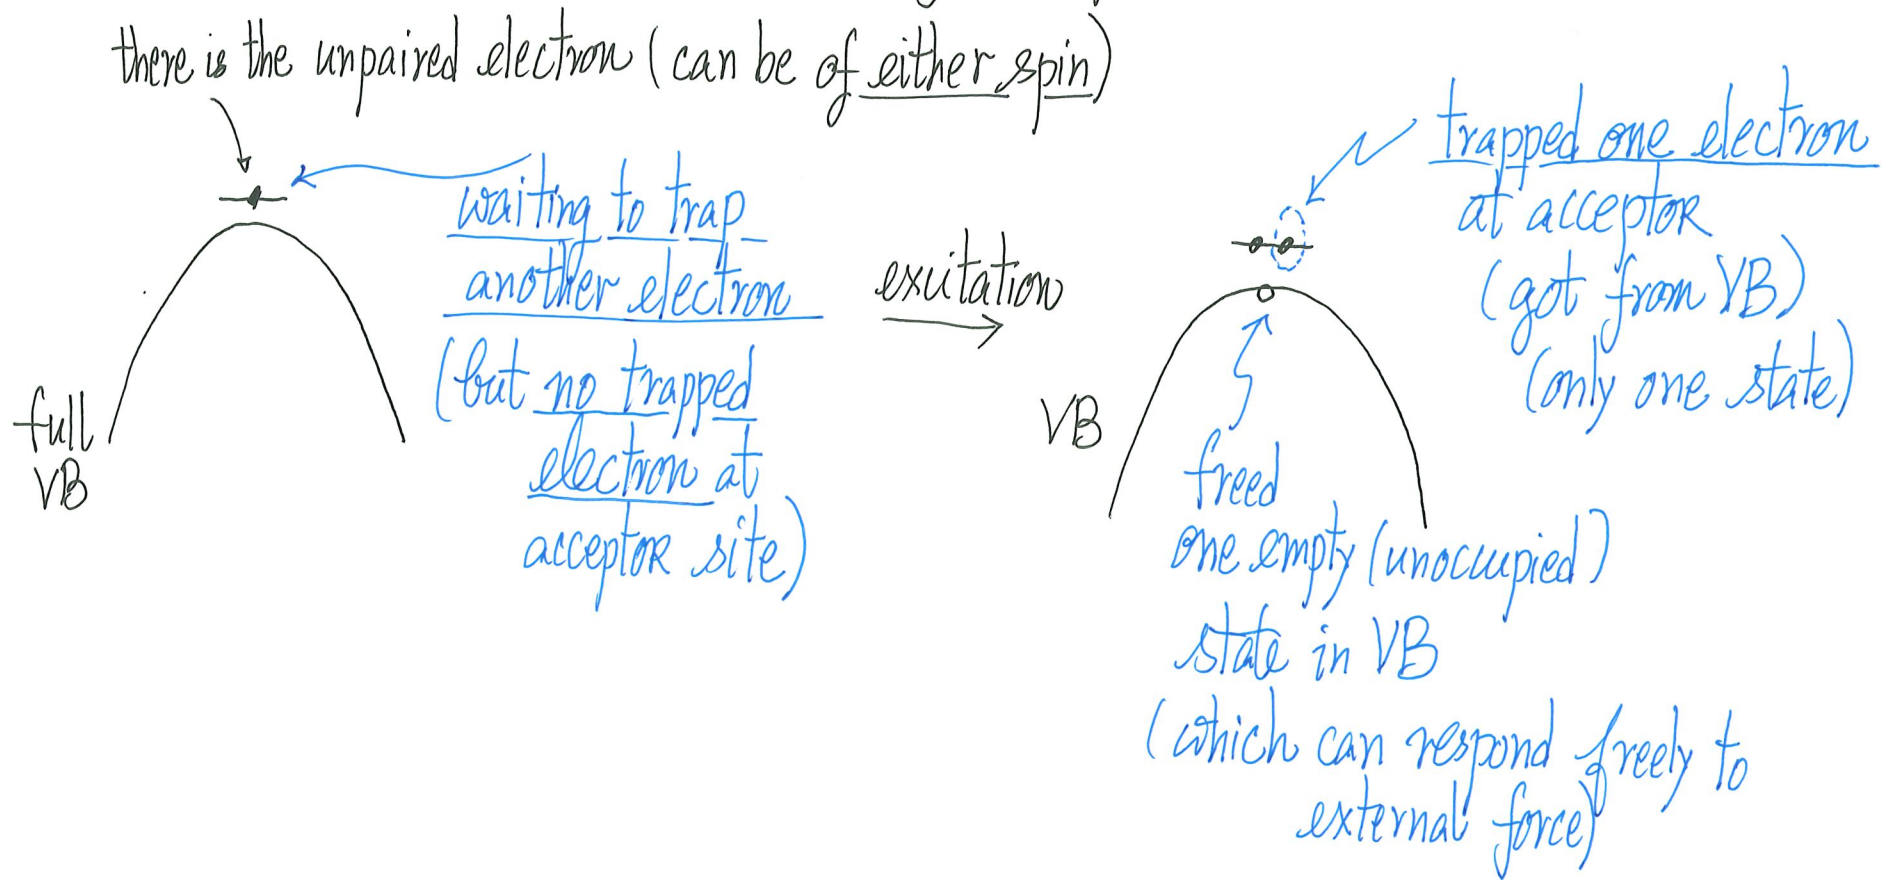 there is the unpaired electron (can be of either spin)
waiting to trap
another electron
(but no trapped
electron at
acceptor site)
full
VB
excitation
trapped one electron
at acceptor
(got from VB)
(only one state)
VB
freed
one empty (unoccupied)
state in VB
(which can respond freely to
external force)